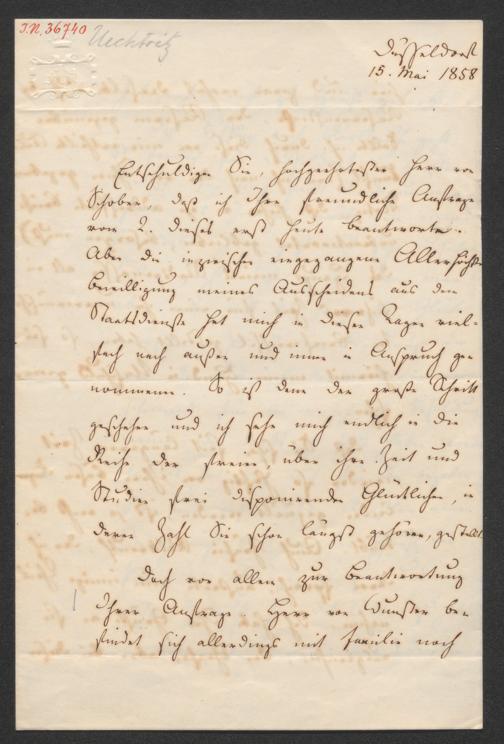 I.N. 36740
Uechtritz
Düsseldorf
15. Mai 1858
Entschuldigen Sie, hochgeehrtester Herr von
Schober, daß ich Ihre freundliche Anfrage
vom 2. dieses erst heute beantworte.
Aber die inzwischen eingegangene Allerhöchste
Bewilligung meines Ausscheidens aus dem
Staatsdienste hat mich in diesen Tagen viel-
fach nach außen und innen in Anspruch ge-
nommen. So ist denn der große Schritt
geschehen und ich sehe mich endlich in die
Reihe der freien, über ihre Zeit und
Studien frei disponirenden Glücklichen, in
deren Zahl Sie schon längst gehören, gestellt.
Doch vor allem zur Beantwortung
Ihrer Anfrage. Herr von be-
findet sich allerdings mit Familie noch